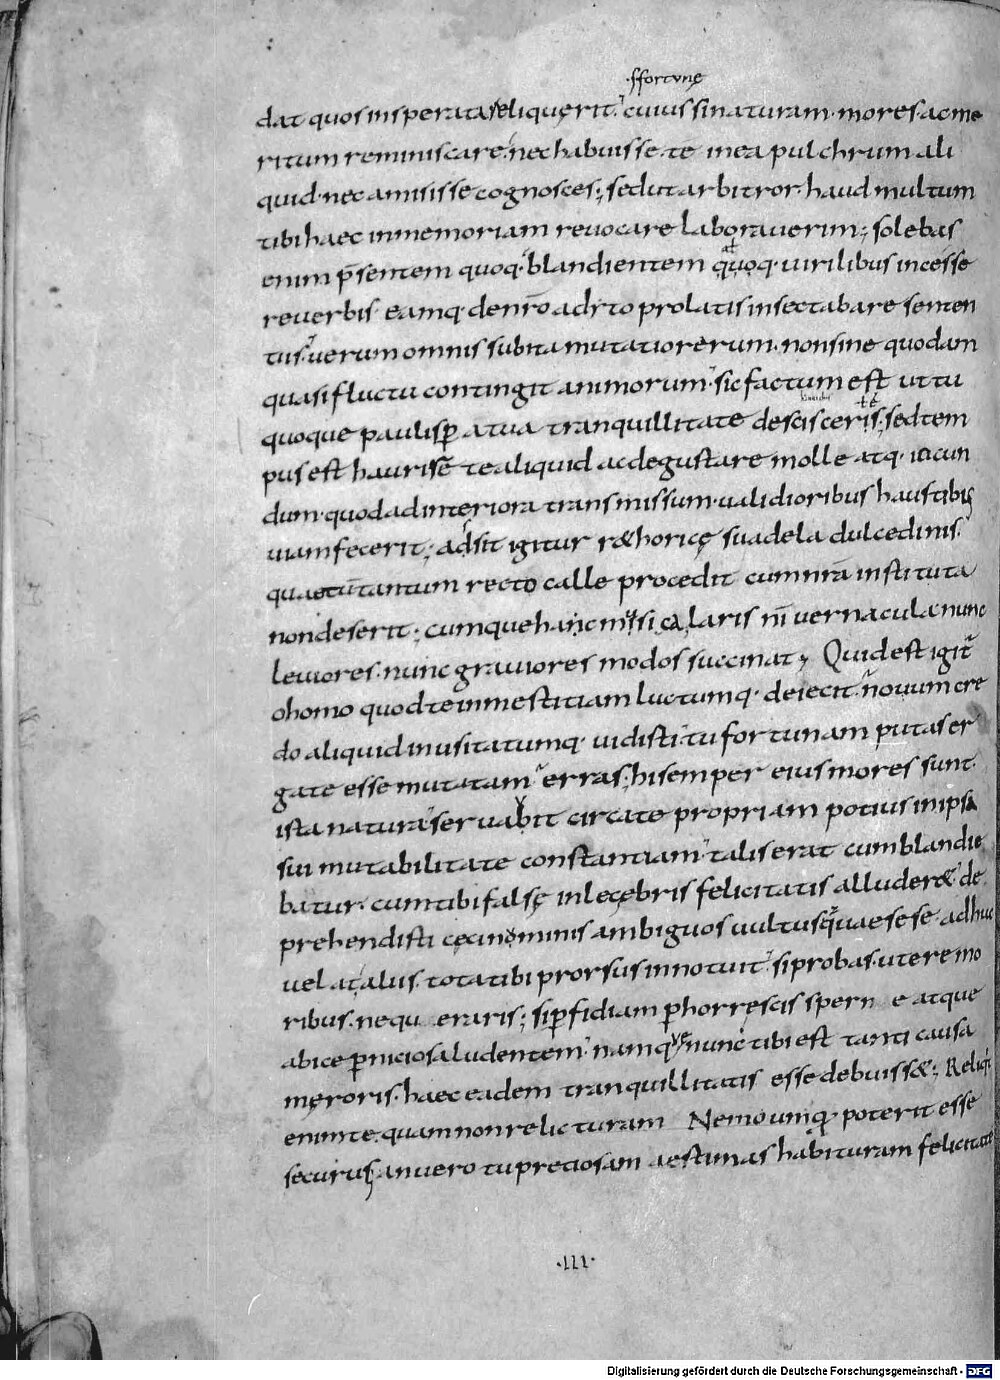 ·s· fortunę
dat quos insperata reliquerit. cuius si naturam· mores· ac me
ritum reminiscare· nec habuisse te in ea pulchrum ali
quid· nec amisisse cognosces; sed ut arbitror· haud multum
tibi haec in memoriam revocare laboraverim; solebas
enim p̄sentem quoq· blandientem quoq· virilibus incesse
re verbis· eamq· de nr̄o adyto prolatis insectabare senten
tiis· verum omnis subita mutatio rerum· non sine quodam
quasi fluctu contingit animorum· sic factum est ut tu
quoque paulisp a tua tranquillitate descisceris; sed tem
pus est haurire te aliquid ac degustare molle atq· iucun
dum· quod ad interiora transmissum· validioribus haustibus
viam fecerit; adsit igitur r&horicę suadela dulcedinis
quae tū tantum recto calle procedit cum nr̄a instituta
non deserit; cumque hac musica laris nr̄i vernacula nunc
leviores· nunc graviores modos succinat; Quid est igit̄
o homo quod te in mestitiam luctumq· deiecit· novum cre
do aliquid inusitatumq· vidisti· tu fortunam putas er
ga te esse mutatam· erras; hi semper eius mores sunt·
ista natura· servavit circa te propriam potius in ipsa
sui mutabilitate constantiam· talis erat cum blandie
batur· cum tibi falsę inlecebris felicitatis alluder&· de
prehendisti ceci nominis ambiguos vultus· quae sese adhuc
velat aliis· tota tibi prorsus innotuit· si probas· utere mo
ribus· ne queraris; si pfidiam phorrescis sperne atque
abice pniciosa ludentem· nam quae nunc tibi est tanti causa
męroris· haec eadem tranquillitatis esse debuiss&; Reliq·
enim te· quam non relicturam Nemo umq· poterit esse
securus; an vero tu preciosam aestimas habituram felicitate
·III·
Digitalisierung gefördert durch die Deutsche Forschungsgemeinschaft - DFG